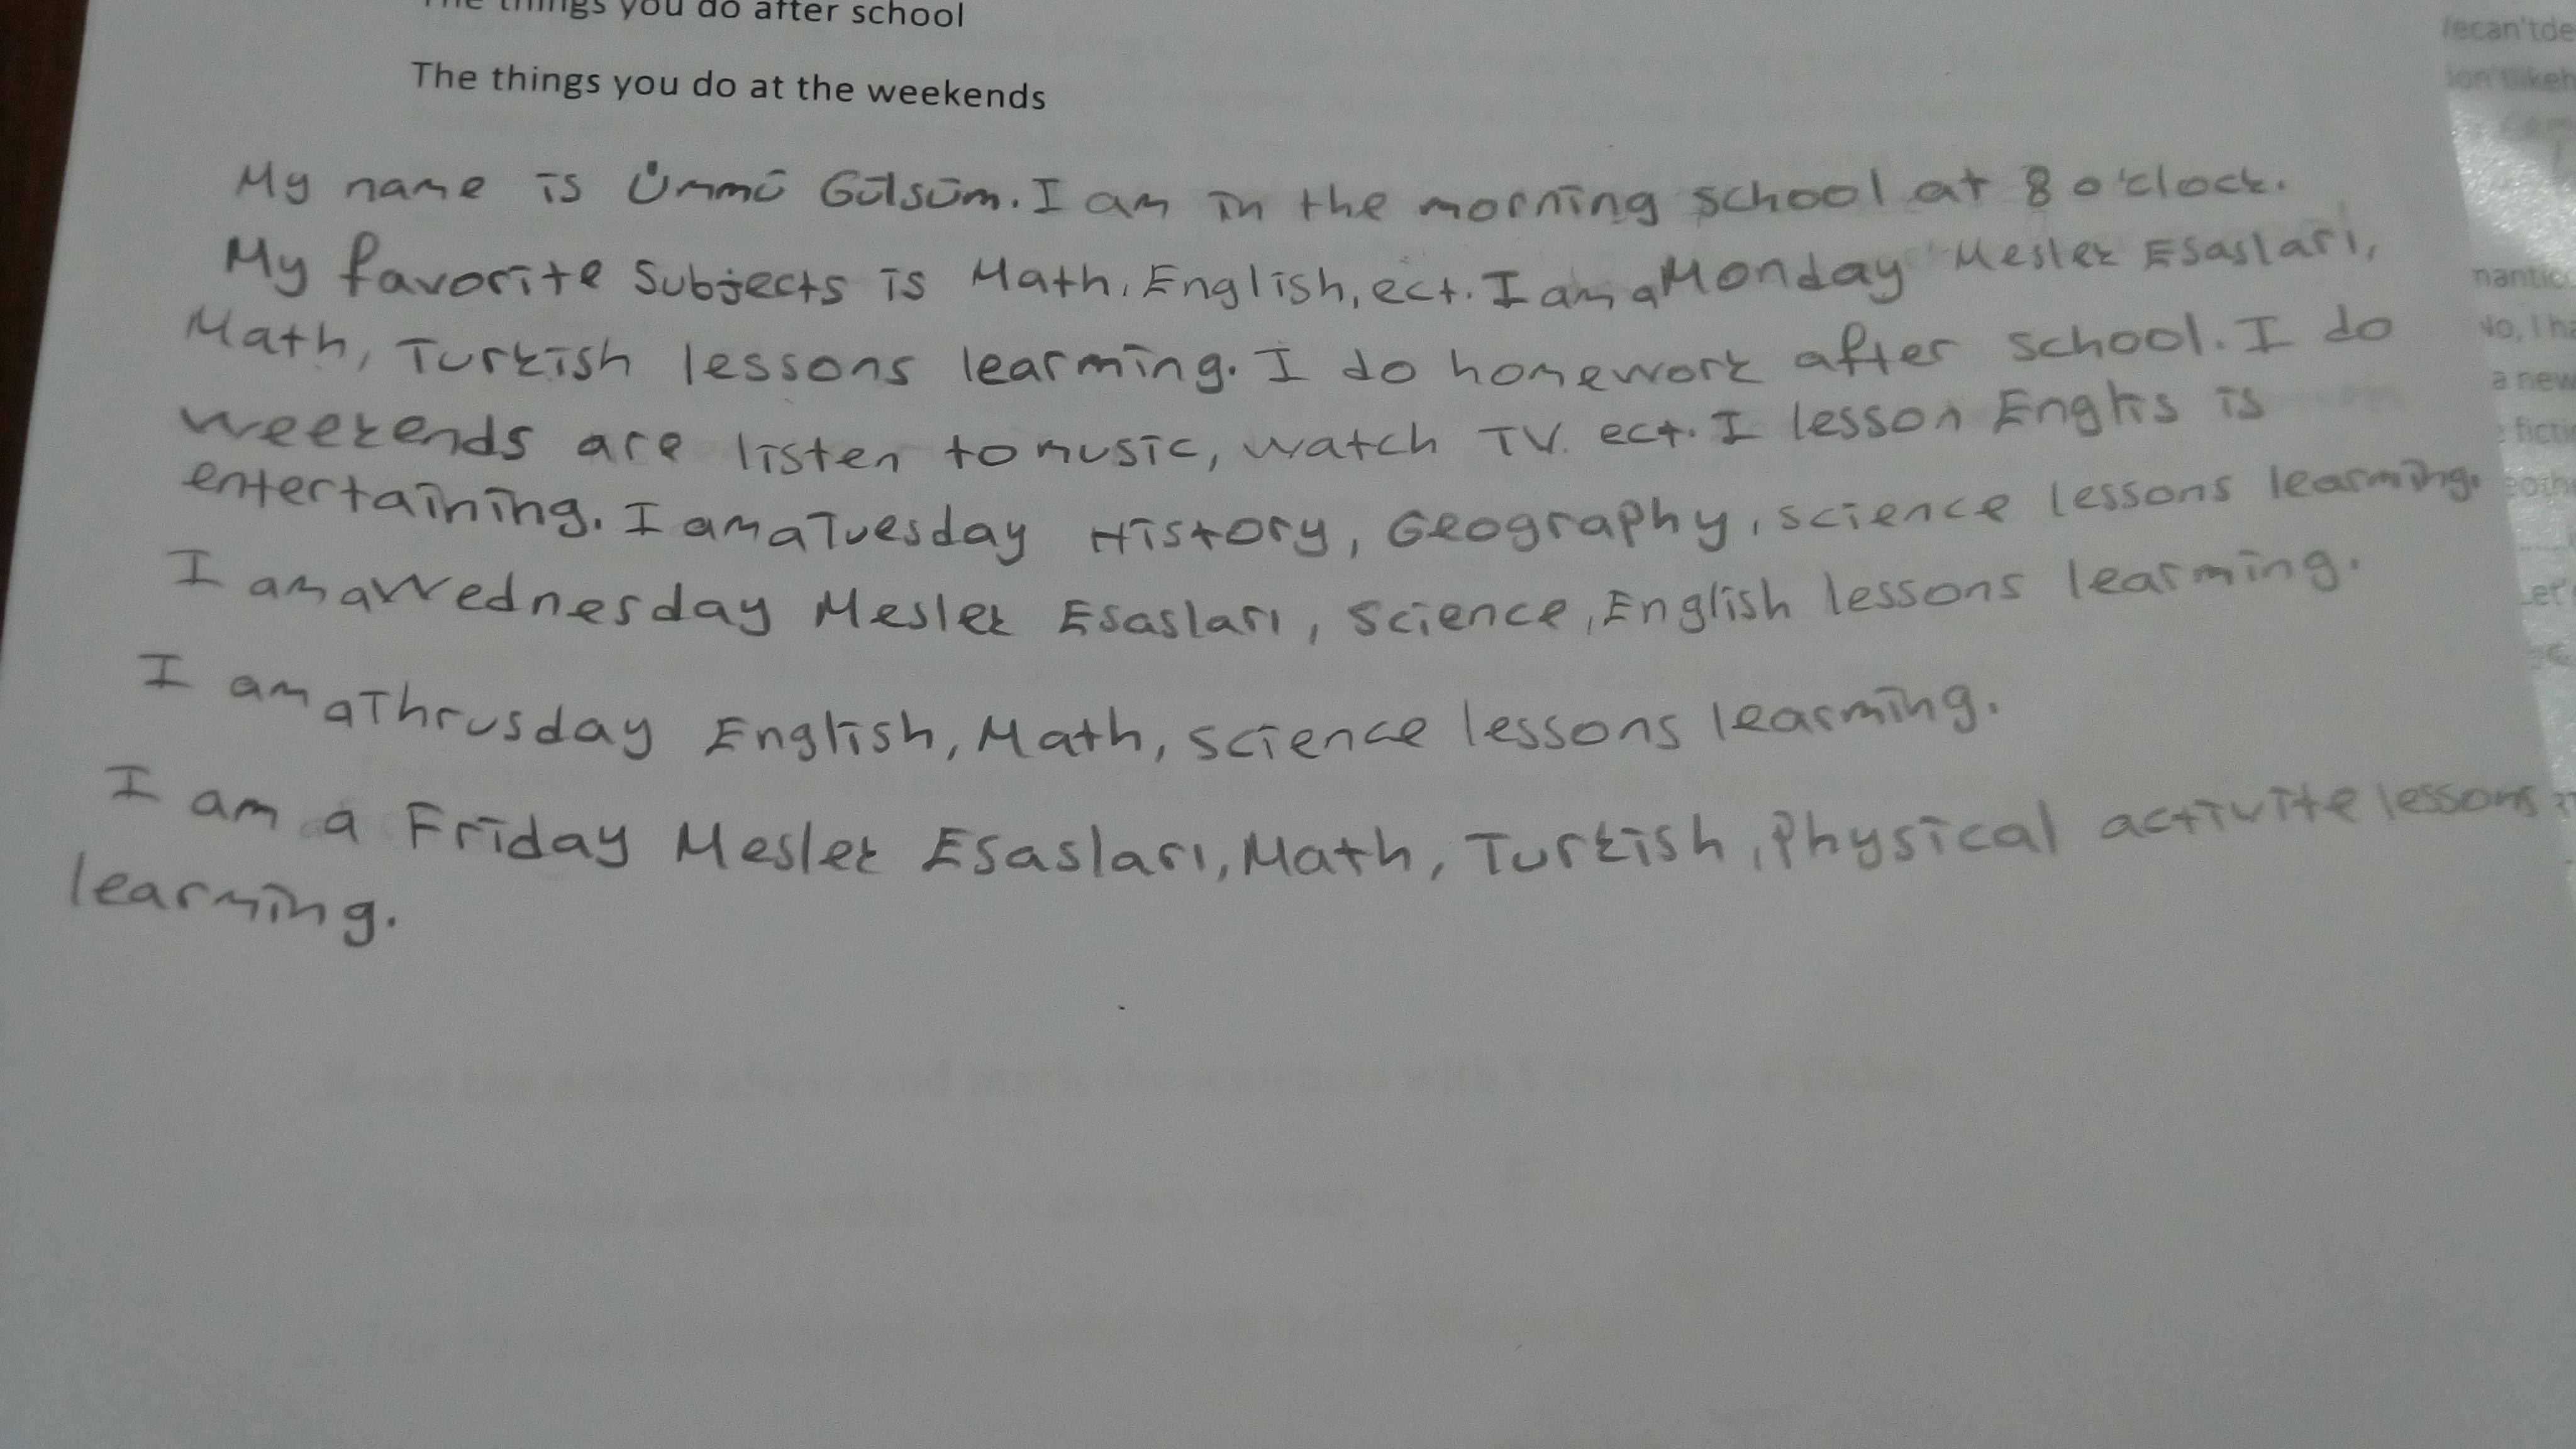 The things you do after school
The things you do at the weekends
My name is Ümmü Gülsüm. I am in the morning school at 8 o'clock.
My favorite subjects is Math, English, ect. I am a Monday Meslek Esasları,
Math, Turkish lessons learming. I do homework after school. I do
weekends are listen to music, watch TV. ect. I lesson Englis is
entertaining. I am a Tuesday History, Geography, science lessons learming.
I am a Wednesday Meslek Esasları, Science, English lessons learming.
I am a Thrusday English, Math, science lessons learming.
I am a Friday Meslek Esasları, Math, Turkish, Physical activite lessons
learming.